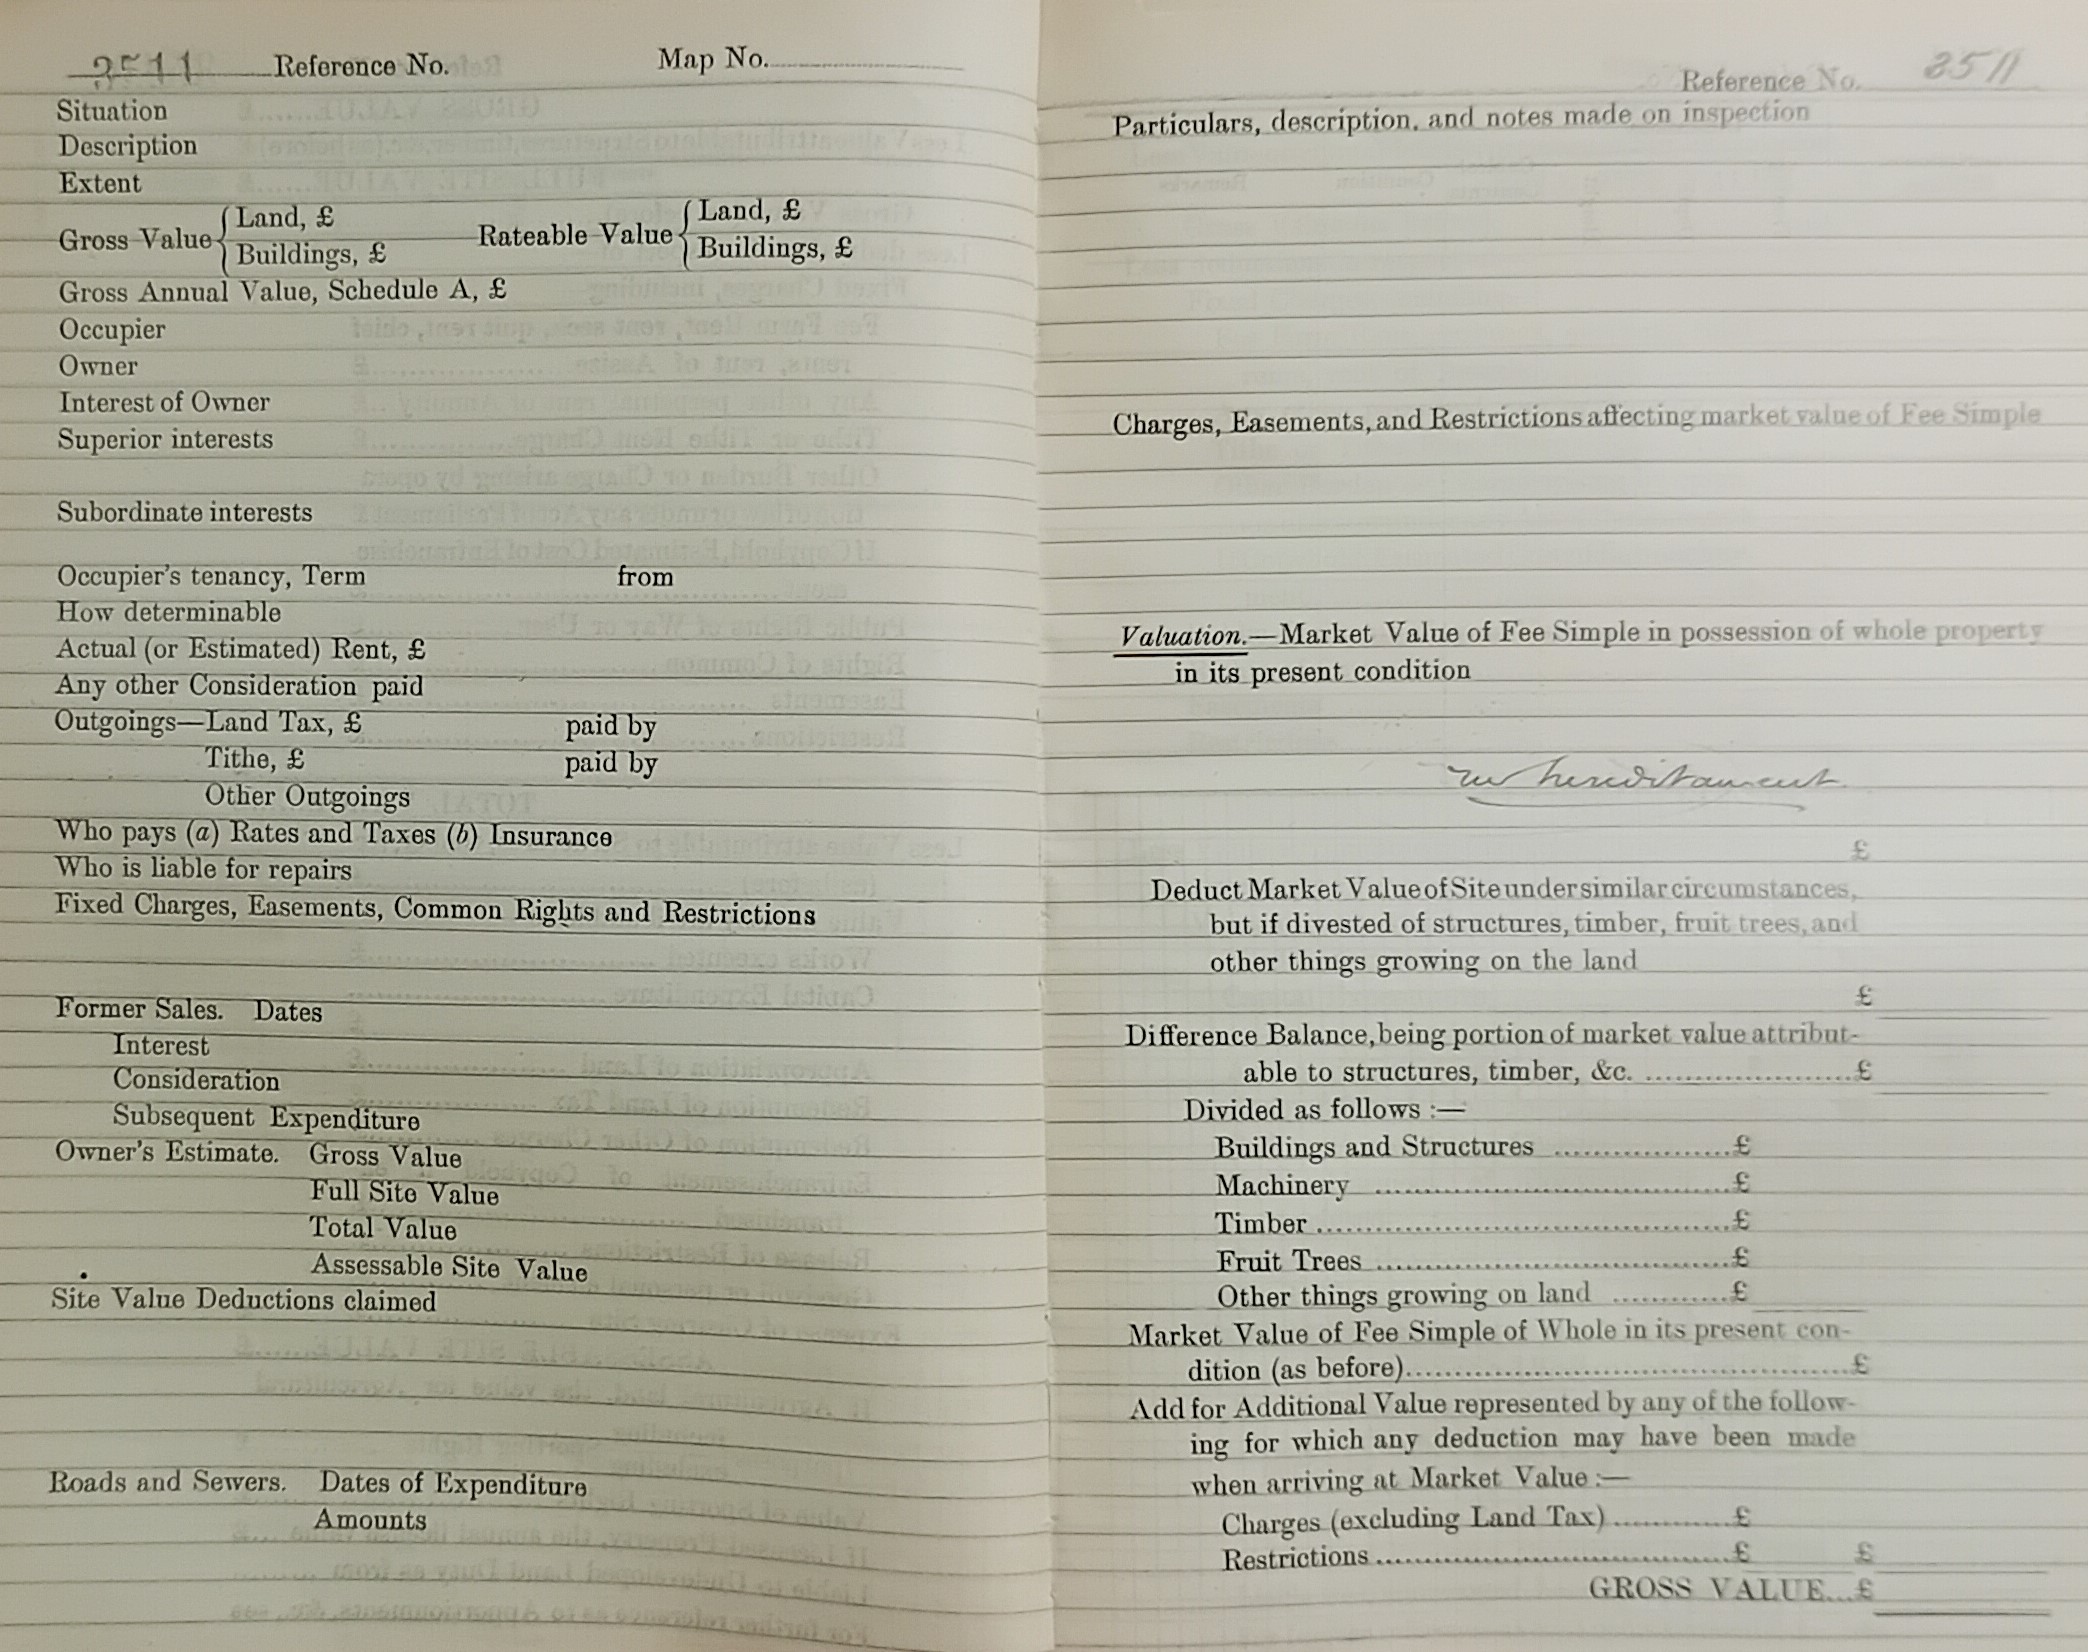 3511 Reference No. Map No.
Situation
Description
Extent
Gross Value { Land, £ Rateable Value { Land, £
Buildings, £ Buildings, £
Gross Annual Value, Schedule A, £
Occupier
Owner
Interest of Owner
Superior interests
Subordinate interests
Occupier's tenancy, Term from
How determinable
Actual (or Estimated) Rent, £
Any other Consideration paid
Outgoings—Land Tax, £ paid by
Tithe, £ paid by
Other Outgoings
Who pays (a) Rates and Taxes (b) Insurance
Who is liable for repairs
Fixed Charges, Easements, Common Rights and Restrictions
Former Sales. Dates
Interest
Consideration
Subsequent Expenditure
Owner's Estimate. Gross Value
Full Site Value
Total Value
Assessable Site Value
Site Value Deductions claimed
Roads and Sewers. Dates of Expenditure
Amounts
Reference No. 3511
Particulars, description, and notes made on inspection
Charges, Easements, and Restrictions affecting market value of Fee Simple
Valuation.—Market Value of Fee Simple in possession of whole property
in its present condition
hereditament
£
Deduct Market Value of Site under similar circumstances,
but if divested of structures, timber, fruit trees, and
other things growing on the land
£
Difference Balance, being portion of market value attribut-
able to structures, timber, &c. ........................£
Divided as follows :—
Buildings and Structures ....................£
Machinery ........................................£
Timber ..............................................£
Fruit Trees ........................................£
Other things growing on land ............£
Market Value of Fee Simple of Whole in its present con-
dition (as before)..................................................£
Add for Additional Value represented by any of the follow-
ing for which any deduction may have been made
when arriving at Market Value :—
Charges (excluding Land Tax) ..............£
Restrictions ........................................£ £
GROSS VALUE...£